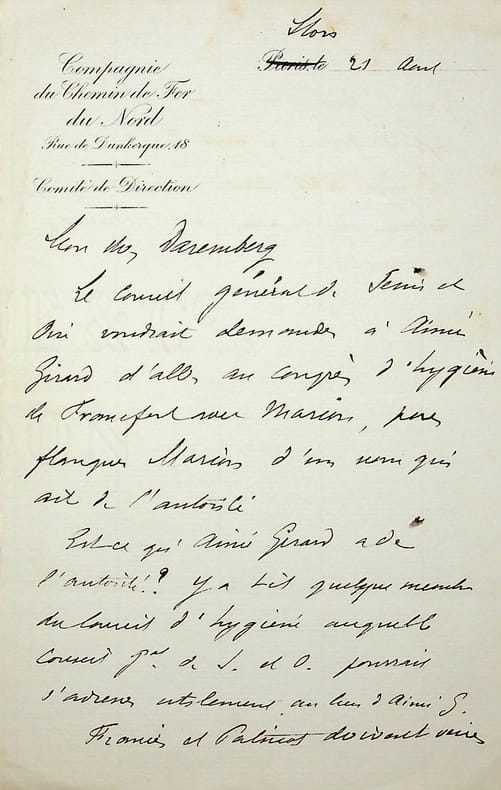 Stors
Paris, le 21 Avril
Compagnie
du Chemin de Fer
du Nord
Rue de Dunkerque, 18
Comité de Direction
Mon cher Daremberg
Le Conseil général de Seine et
Oise voudrait demander à Aimé
Girard d'aller au congrès d'hygiène
de Francfort avec Marion, pour
flanquer Marion d'un nom qui
ait de l'autorité
Est-ce qu'Aimé Girard a de
l'autorité ? Y a t-il quelque membre
du Conseil d'hygiène auquel le
Conseil gal. de S. et O. pourrait
s'adresser utilement, au lieu d'Aimé G.
et doivent venir